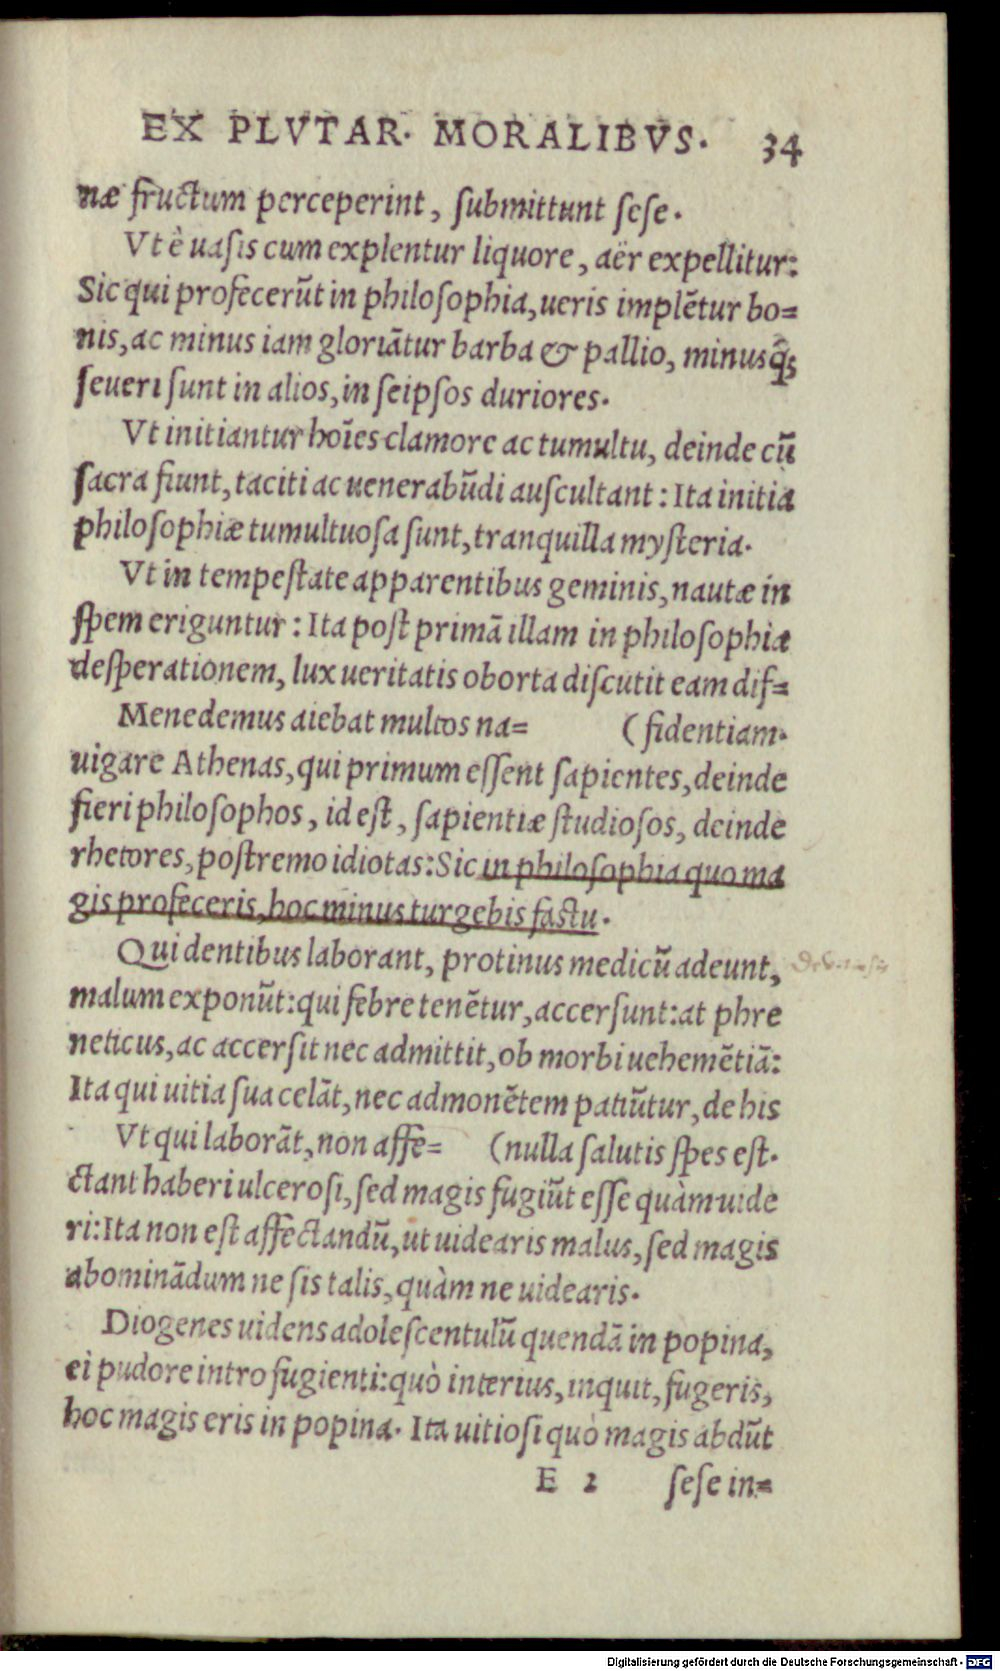 EX PLVTAR. MORALIBVS. 34
næ fructum perceperint, submittunt sese.
Vt è uasis cum explentur liquore, aër expellitur:
Sic qui profecerũt in philosophia, ueris implẽtur bo=
nis, ac minus iam gloriãtur barba & pallio, minusq́;
seueri sunt in alios, in seipsos duriores.
Vt initiantur hoĩes clamore ac tumultu, deinde cũ
sacra fiunt, taciti ac uenerabũdi auscultant: Ita initia
philosophiæ tumultuosa sunt, tranquilla mysteria.
Vt in tempestate apparentibus geminis, nautæ in
spem eriguntur: Ita post primã illam in philosophia
desperationem, lux ueritatis oborta discutit eam dif=
Menedemus aiebat multos na= (fidentiam.
uigare Athenas, qui primum essent sapientes, deinde
fieri philosophos, id est, sapientiæ studiosos, deinde
rhetores, postremo idiotas: Sic in philosophia quo ma
gis profeceris, hoc minus turgebis fastu.
Qui dentibus laborant, protinus medicũ adeunt,
malum exponũt: qui febre tenẽtur, accersunt: at phre
neticus, ac accersit nec admittit, ob morbi uehemẽtiã:
Ita qui uitia sua celãt, nec admonẽtem patiũtur, de his
Vt qui laborãt, non affe= (nulla salutis spes est.
ctant haberi ulcerosi, sed magis fugiũt esse quàm uide
ri: Ita non est affectandũ, ut uidearis malus, sed magis
abominãdum ne sis talis, quàm ne uidearis.
Diogenes uidens adolescentulũ quendã in popina,
ei pudore intro fugienti: quò interius, inquit, fugeris,
hoc magis eris in popina. Ita uitiosi quò magis abdũt
E 2 sese in=
Digitalisierung gefördert durch die Deutsche Forschungsgemeinschaft - DFG